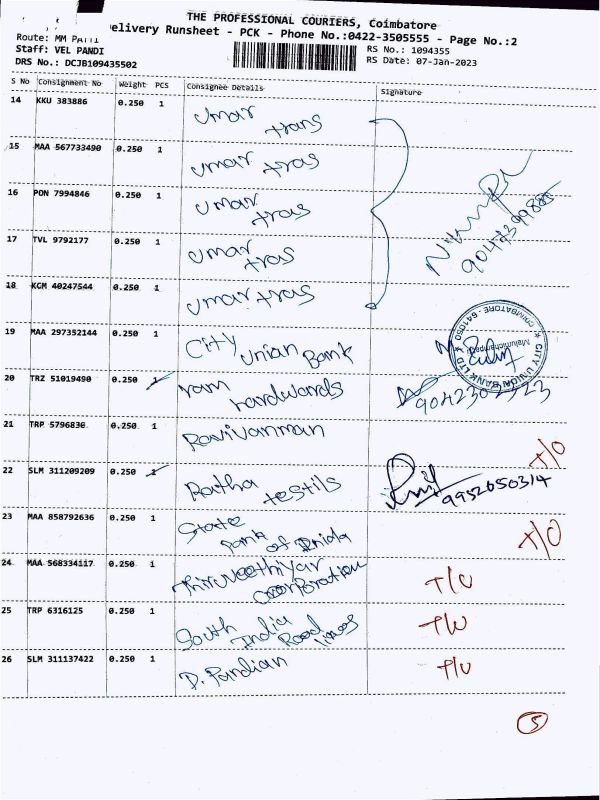 THE PROFESSIONAL COURIERS, Coimbatore
elivery Runsheet - PCK - Phone No.:0422-3505555 - Page No.:2
Route: MM PATTI
Staff: VEL PANDI
RS No.: 1094355
DRS No.: DCJB109435502
RS Date: 07-Jan-2023
S No Consignment No Weight PCS Consignee Details Signature
14 KKU 383886 0.250 1 Umar trans
15 MAA 567733490 0.250 1 Umar tras
16 PON 7994846 0.250 1 Umar tras
17 TVL 9792177 0.250 1 Umar tras
18 KCM 40247544 0.250 1 Umar tras
19 MAA 297352144 0.250 1 City Unian Bank
CITY UNION BANK LTD
COIMBATORE - 641050
20 TRZ 51019490 0.250 1 ram hardwards
21 TRP 5796830 0.250 1 Ravivanman T/O
22 SLM 311209209 0.250 1 Ratha testils 9952650314
23 MAA 858792636 0.250 1 State bank of Inida T/O
24 MAA 568334117 0.250 1 Thiruveethiyar coorporation T/O
25 TRP 6316125 0.250 1 South India Road lines T/O
26 SLM 311137422 0.250 1 P. Pandian T/O
5